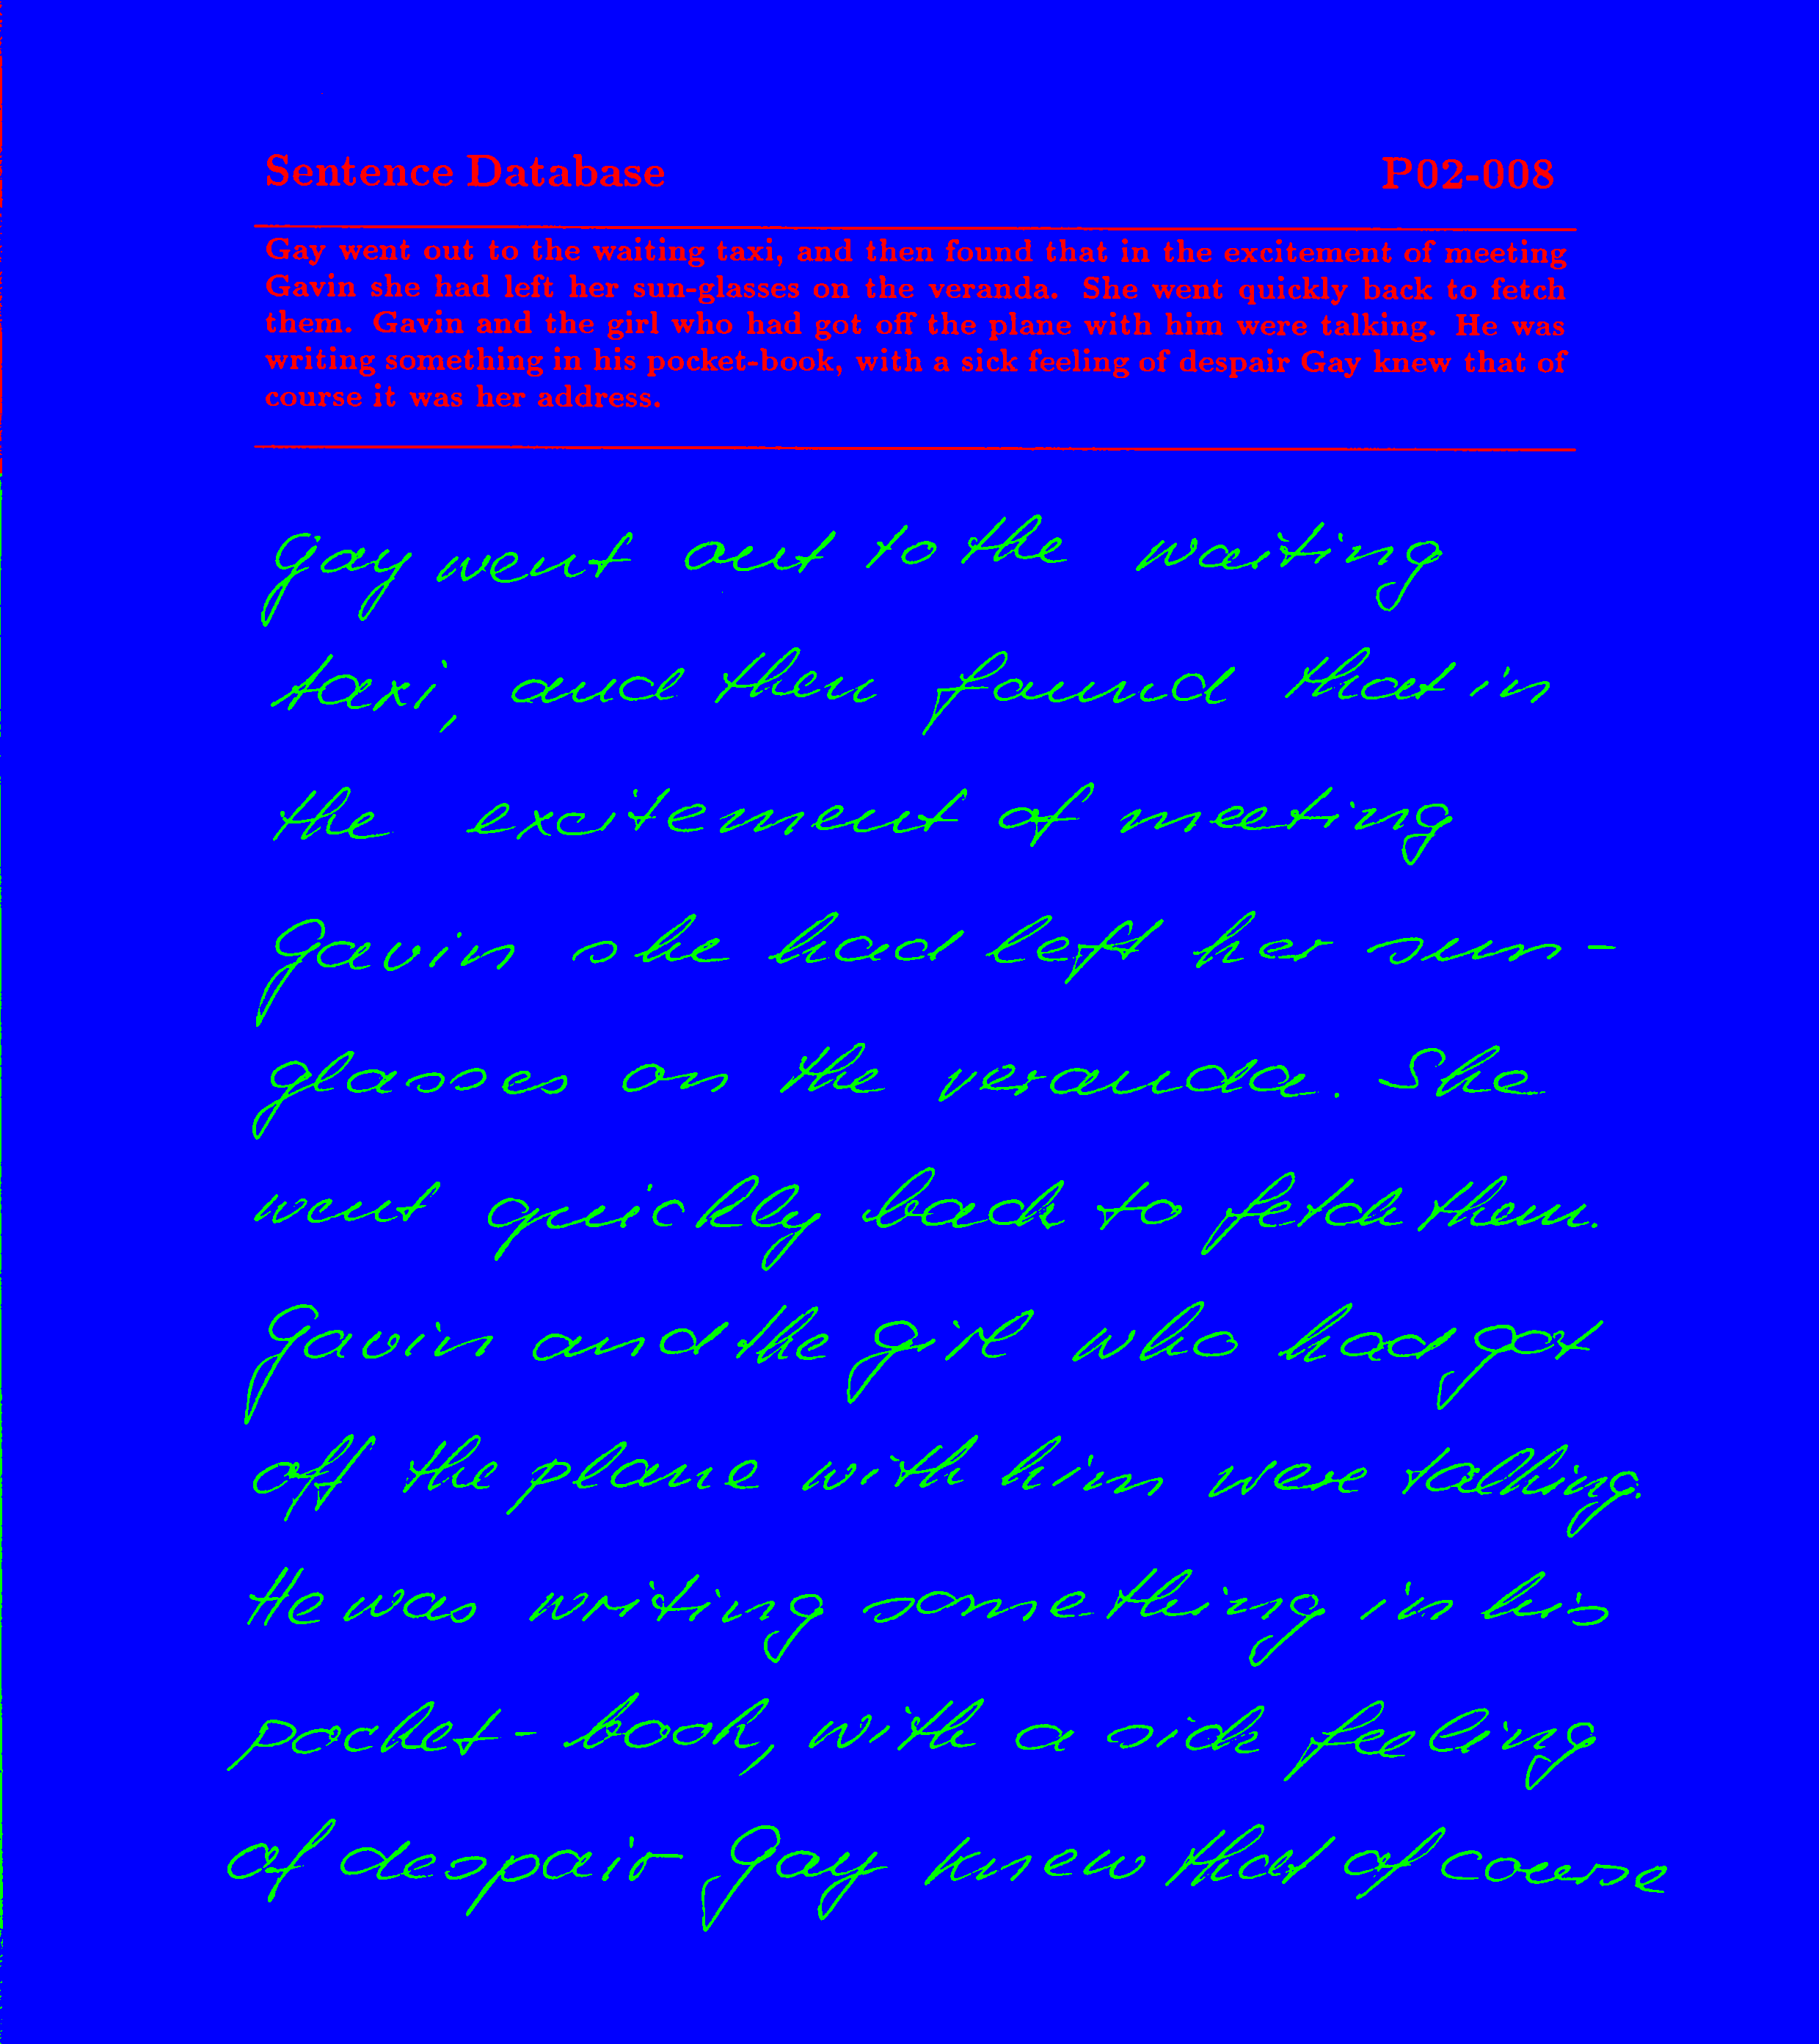 Sentence Database P02-008
Gay went out to the waiting taxi, and then found that in the excitement of meeting
Gavin she had left her sun-glasses on the veranda. She went quickly back to fetch
them. Gavin and the girl who had got off the plane with him were talking. He was
writing something in his pocket-book, with a sick feeling of despair Gay knew that of
course it was her address.
Gay went out to the waiting
taxi, and then found that in
the excitement of meeting
Gavin she had left her sun-
glasses on the veranda. She
went quickly back to fetch them.
Gavin and the girl who had got
off the plane with him were talking.
He was writing something in his
pocket-book, with a sick feeling
of despair Gay knew that of course